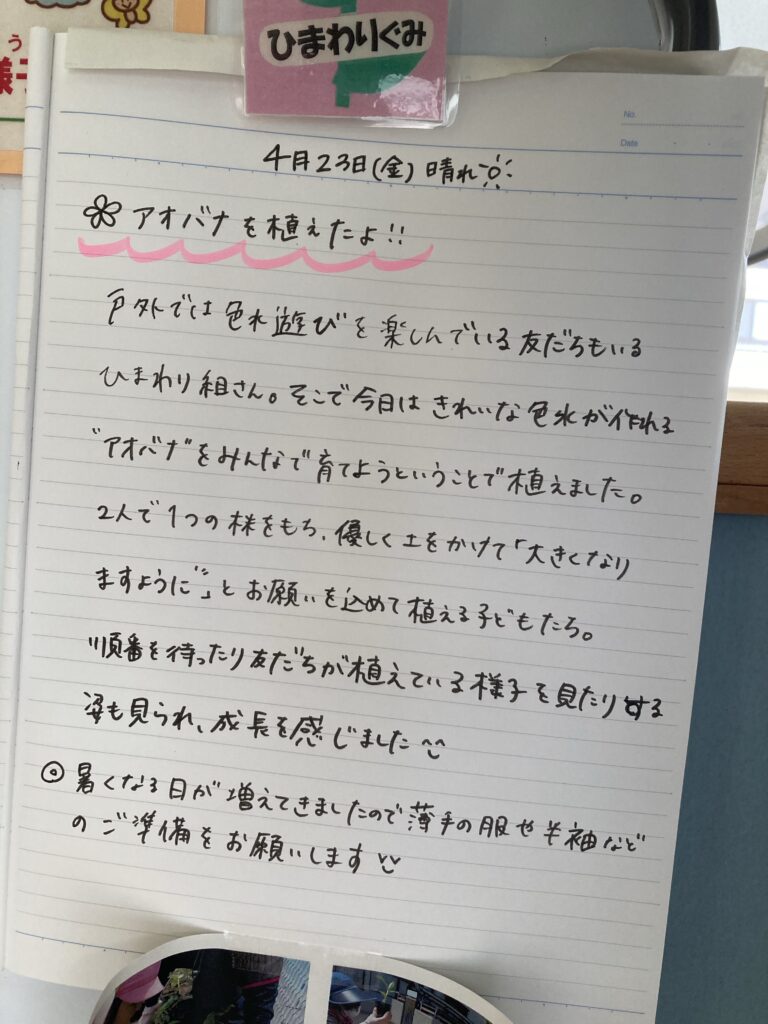 う
様子
ひまわりぐみ
No.
Date
4月23日(金) 晴れ
アオバナを植えたよ!!
戸外では色水遊びを楽しんでいる友だちもいる
ひまわり組さん。そこで今日はきれいな色水が作れる
"アオバナ"をみんなで育てようということで植えました。
2人で1つの株をもち、優しく土をかけて「大きくなり
ますように」とお願いを込めて植える子どもたち。
順番を待ったり友だちが植えている様子を見たりする
姿も見られ、成長を感じました
◎ 暑くなる日が増えてきましたので薄手の服や半袖など
のご準備をお願いします